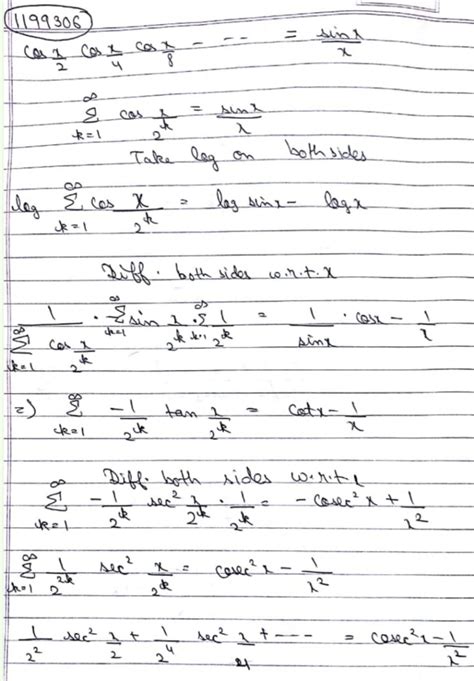 1199306
cos x/2 cos x/4 cos x/8 - - - - = sinx/x
∞ Σ k=1 cos x/2^k = sinx/x
Take log on both sides
log ∞ Σ k=1 cos x/2^k = log sinx - logx
Diff. both sides w.r.t. x
1/(∞ Σ k=1 cos x/2^k) · ∞ Σ k=1 sin x/2^k · ∞ Σ k=1 1/2^k = 1/sinx · cosx - 1/x
=) ∞ Σ k=1 -1/2^k tan x/2^k = cotx - 1/x
Diff. both sides w.r.t x
∞ Σ k=1 -1/2^k sec² x/2^k · 1/2^k = - cosec² x + 1/x²
∞ Σ k=1 1/2^2k sec² x/2^k = cosec² x - 1/x²
1/2² sec² x/2 + 1/2⁴ sec² x/4 + - - - = cosec² x - 1/x²